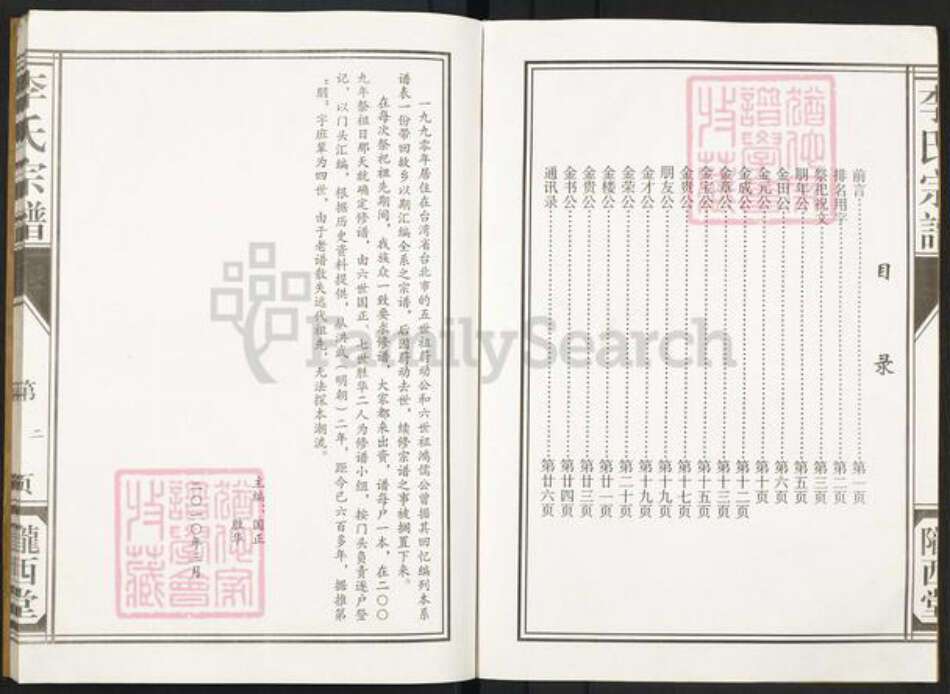 目录
前言……第一页
排名用字……第二页
祭祀祝文……第三页
朋年公……第五页
金田公……第六页
金元公……第十页
金成公……第十二页
金章公……第十五页
金宝公……第十六页
金爽公……第十七页
朋友公……第十九页
金才公……第十九页
金荣公……第二十页
金楼公……第廿一页
金贵公……第廿三页
金书公……第廿四页
通讯录……第廿六页
李氏宗谱
隴西堂
一九九零年居住在台湾省台北市的五世祖蔚动公和六世祖鸿儒公曾据其回忆编列本系
谱表一份带回故乡以期汇编全系之宗谱，后因蔚动去世，续修宗谱之事被搁置下来。
在每次祭祀祖先期间，我族众一致要求修谱，大家都来出资，谱每户一本，在二〇〇
九年祭祖日那天就确定修谱，由六世国正、七世胜华二人为修谱小组，按门头负责逐户登
记，以门头汇编，根据历史资料提供，从洪武（明朝）二年，距今已六百多年，据推第
“朋”字班辈为四世，由于老谱散失远代祖先，无法探本溯流。
主编：国正
胜华
二〇一〇年三月
李氏宗譜
第二页
隴西堂
FamilySearch